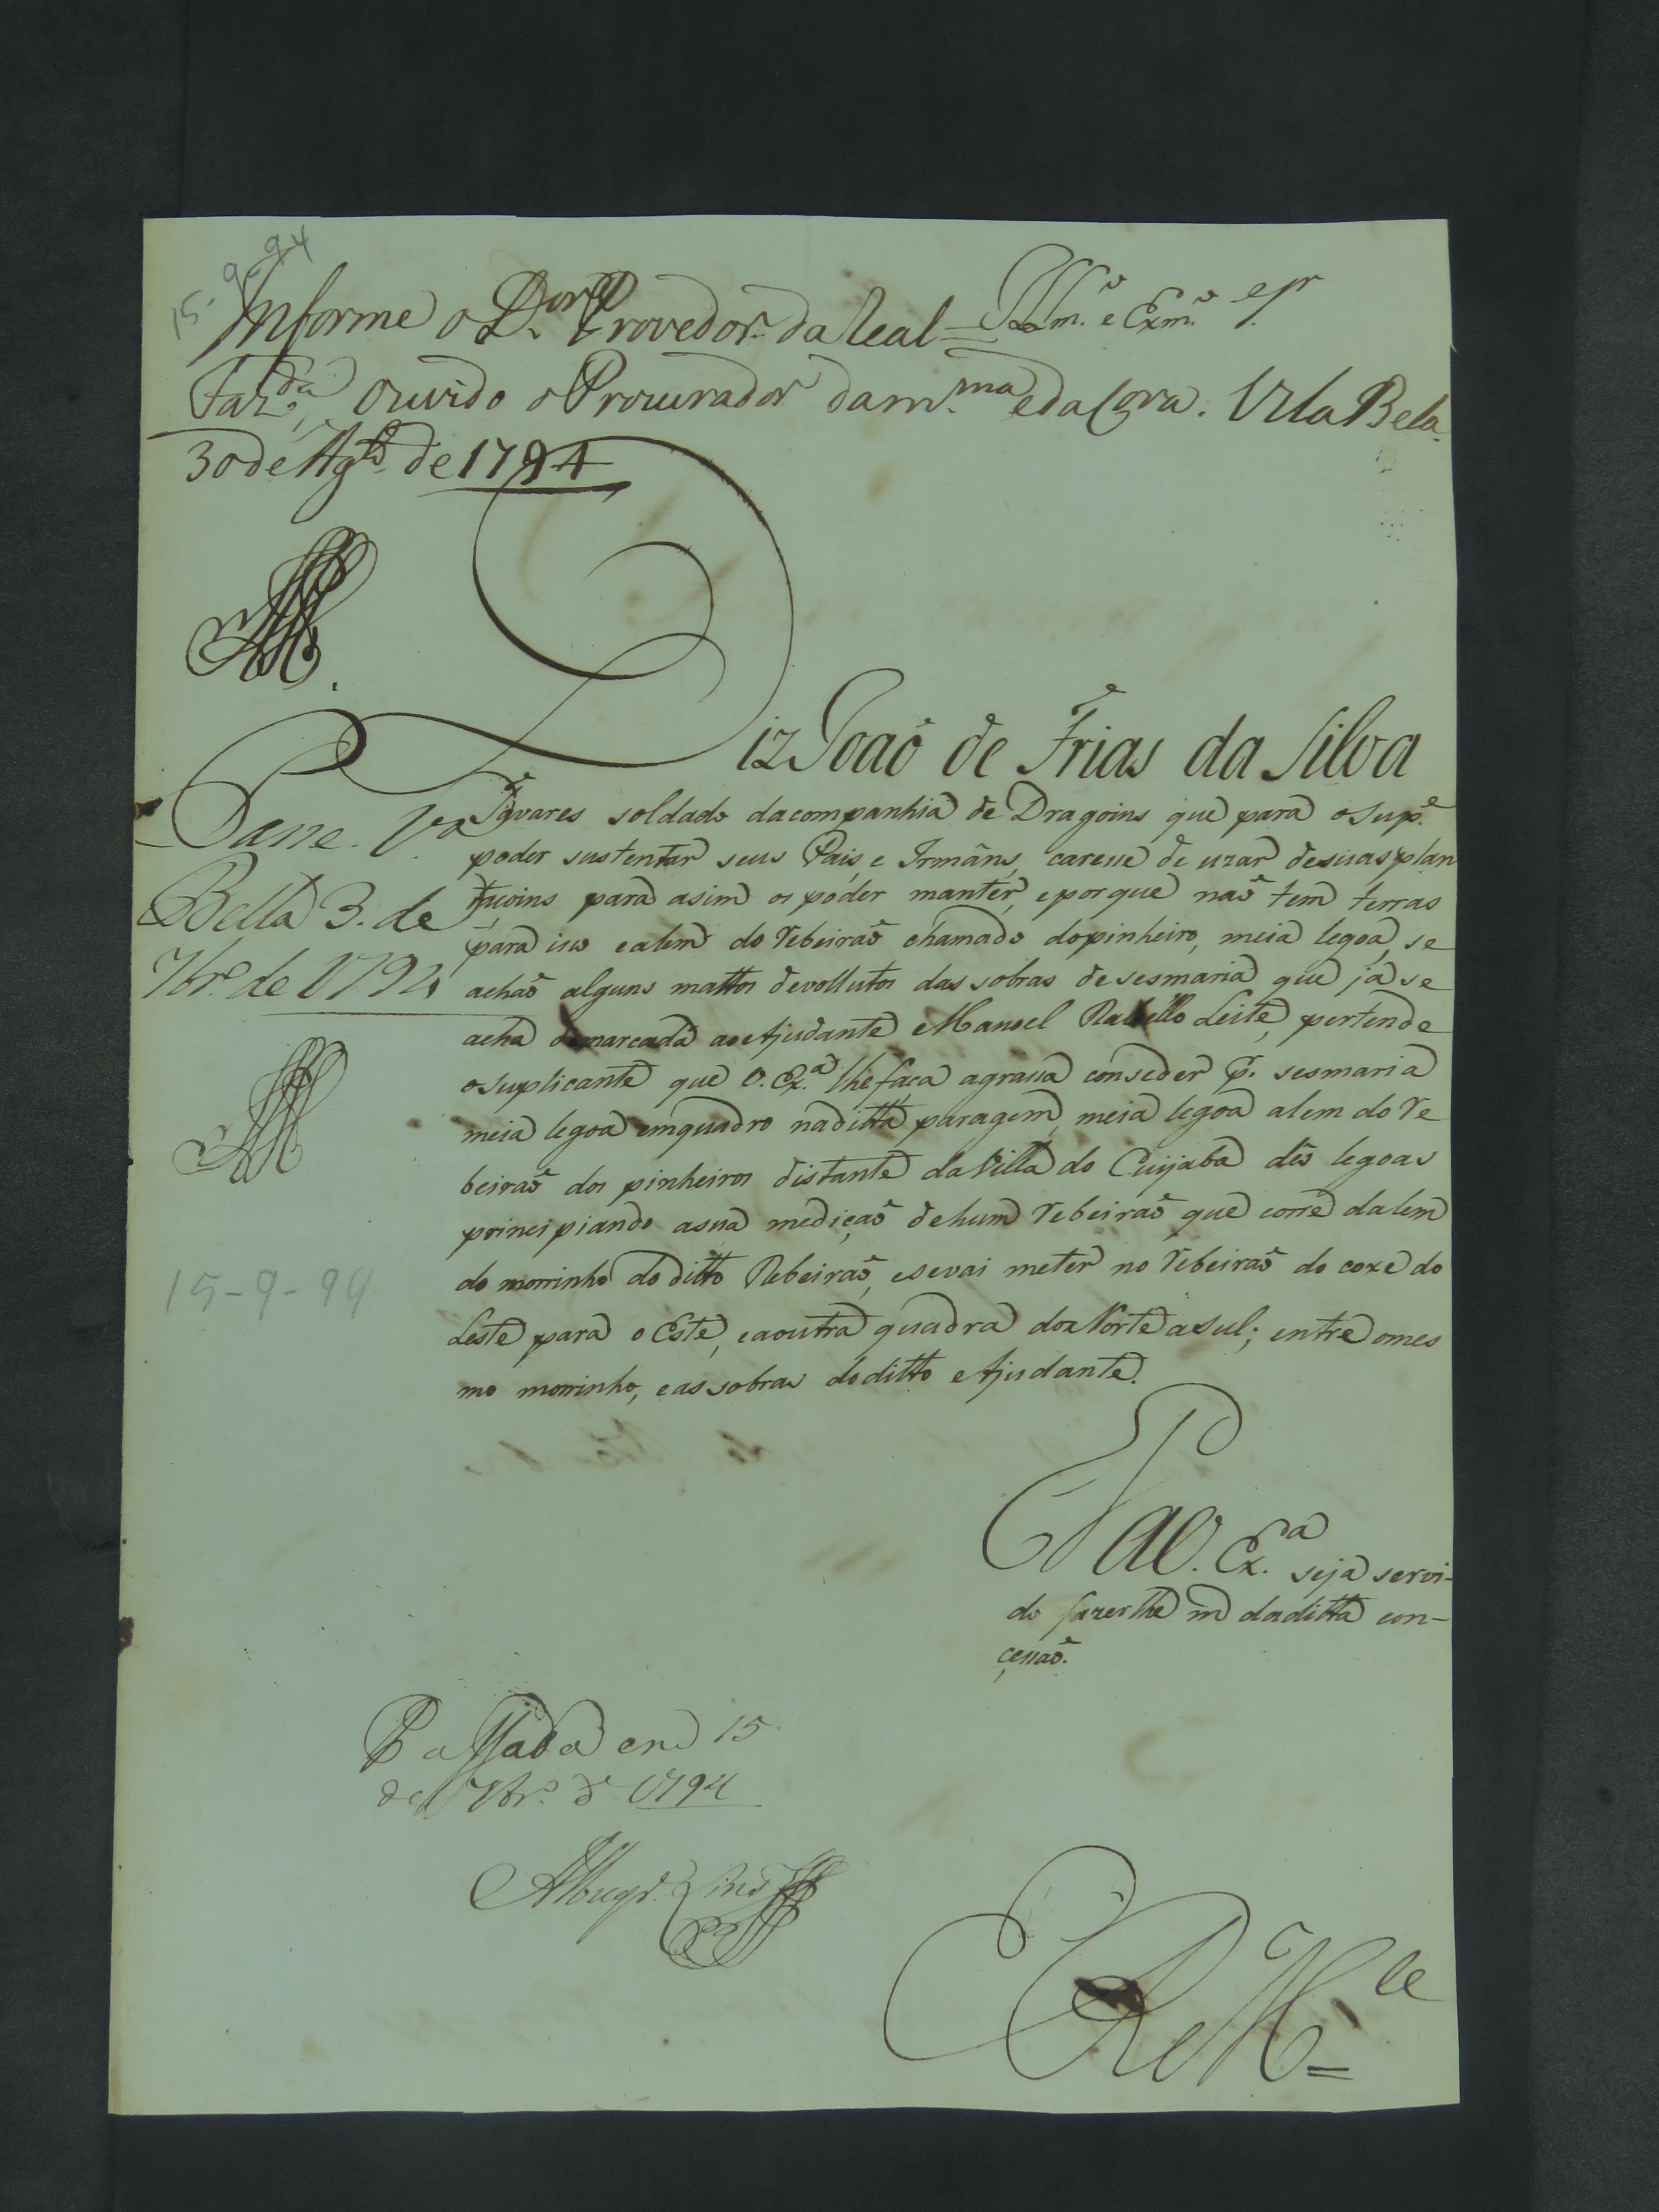 15-9-94
Illm.º e Exm.º Sr.
Informe o D.or Provedor da Real
Faz.da, Ouvido o Procurador da m.ma e da Coroa. Vila Bela
30 de Ag.to de 1794
Diz Joaõ de Frias da Silva
Tavares soldado da companhia de Dragoins que para o Sup.e
poder sustentar seus Pais, e Irmâns, caresse de uzar de suas plan
tacoins para asim os poder manter, e porque naõ tem terras
para iso e alem do Rebeiraõ chamado do pinheiro, meia legoa, se
achaõ alguns mattos devollutos das sobras de sesmaria que já se
acha demarcada ao Ajudante Manoel Rabello Leite, pertende
o suplicante que V. Ex.a lhe faça a grassa conseder p.r sesmaria
meia legoa em quadro na ditta paragem, meia legoa alem do Re
beiraõ dos pinheiros distante da Villa do Cuijaba dés legoas
principiando a sua mediçaõ de hum Rebeiraõ que corre dalem
do morrinho do ditto Rebeiraõ, e se vai meter no Rebeiraõ do coxe do
Leste para o Este, e a outra quadra do Norte a sul; entre o mes
mo morrinho, e as sobras do ditto Ajudante.
Passe. V.a
Bella 3. de
7br.º de 1794
15-9-94
P a V. Ex.a seja servi-
do fazerlhe m da ditta con-
çessaõ.
Passada em 15
de 7br.º de 1794
Albuqr.
E R M.ce